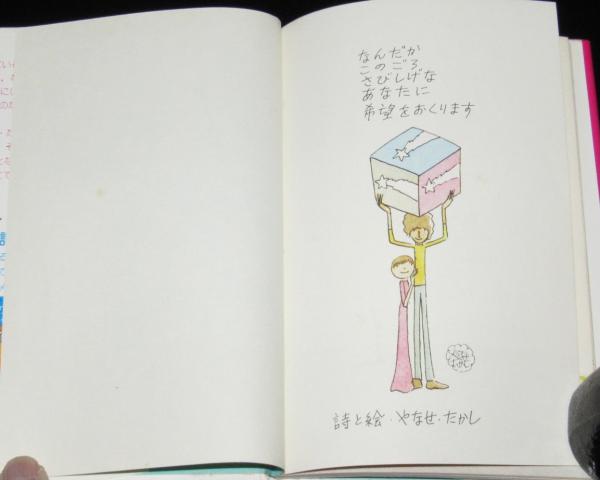 なんだか
このごろ
さびしげな
あなたに
希望をおくります
詩と絵・やなせ・たかし